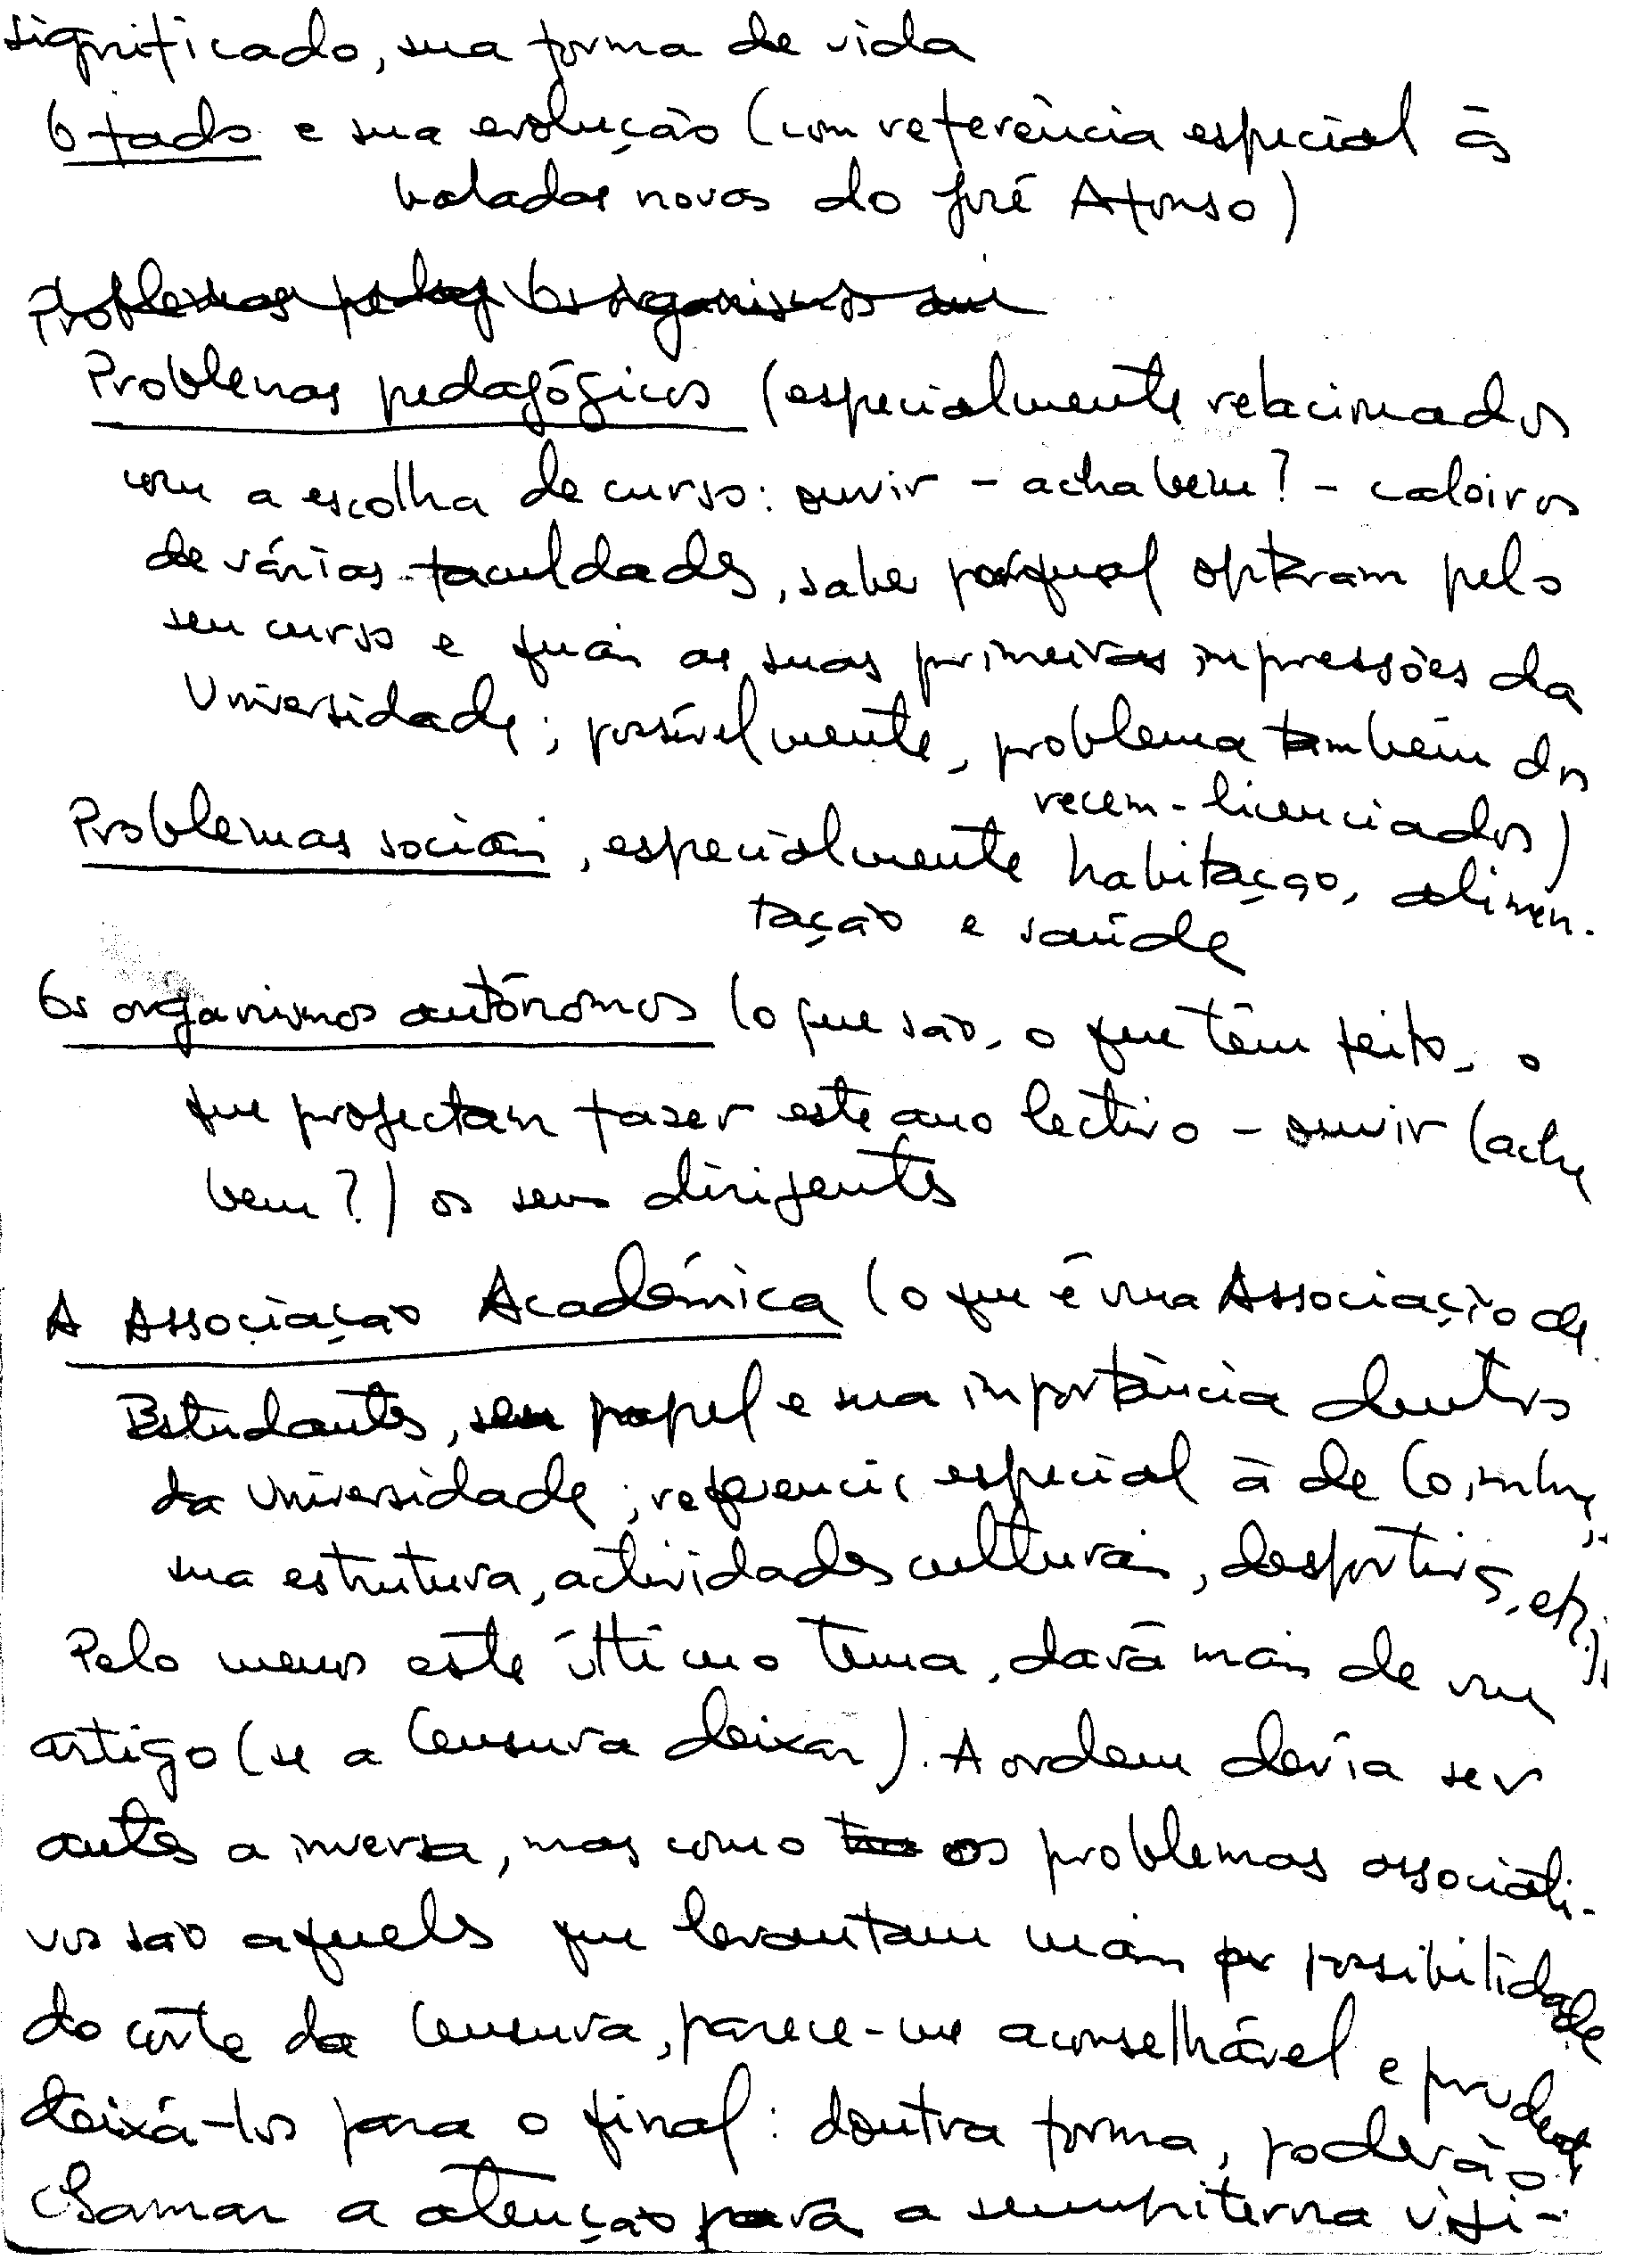 significado, sua forma de vida
O fado e sua evolução (com referência especial às
baladas novas do José Afonso)
Problemas pedag Os organismos au
Problemas pedagógicos (especialmente relacionados
com a escolha de curso: ouvir – acha bem? – caloiros
de várias faculdades, saber porqual optaram pelo
seu curso e quais as suas primeiras impressões da
Universidade; possívelmente, problema também dos
recem-licenciados)
Problemas sociais, especialmente habitação, alimen-
tação e saúde
Os organismos autónomos (o que são, o que têm feito, o
que projectam fazer este ano lectivo – ouvir (acha
bem?) os seus dirigentes
A Associação Académica (o que é uma Associação de
Estudantes, seu papel e sua importância dentro
da Universidade; referencia especial à de Coimbra,
sua estrutura, actividades culturais, desportivas, etc.)
Pelo menos este último tema, dará mais de um
artigo (se a Censura deixar). A ordem devia ser
antes a inversa, mas como os problemas associati-
vos são aqueles que levantam mais possibilidade
do corte da Censura, parece-me aconselhável e prudente
deixá-los para o final: doutra forma, poderão
chamar a atenção para a sempiterna vigi-